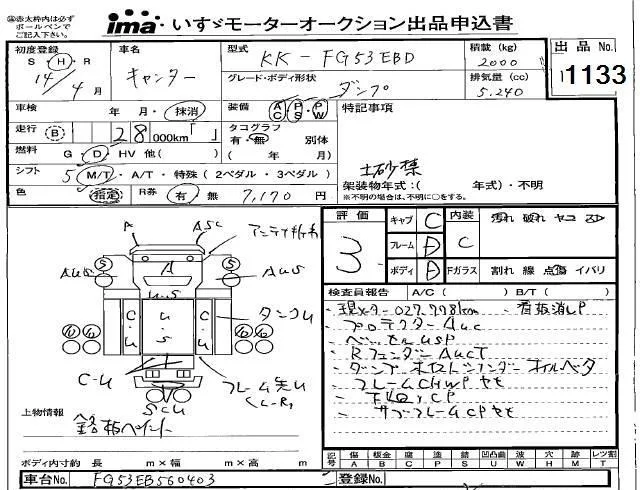 ⚠赤太枠内は必ず
ボールペンで
ご記入下さい。
ima いすゞモーターオークション出品申込書
初度登録 S・H・R 14/4月
車名 キャンター
型式 KK-FG53EBD
グレード・ボディ形状 ダンプ
積載(kg) 2000
排気量(cc) 5.240
出品No. 1133
車検 年 月・抹消
装備 AC・PS・PW
特記事項
走行 B 28 000km「 」
タコグラフ 有・無 別体
( 年 月)
燃料 G・D・HV 他( )
シフト 5 M/T・A/T・特殊(2ペダル・3ペダル)
土砂禁
架装物年式:( 年式)・不明
※不明の場合は、不明に○をする。
色 指定 R券 有 無 7,170円
評価 3
キャブ C
フレーム D
ボディ D
内装 C
Fガラス
汚れ 破れ ヤコ スレ
割れ 線 点傷 イバリ
検査員報告 A/C( ) B/T( )
・現メーター027,778km ・看板消しP
・プロテクターAUC
・ベッセルUSP
・RフェンダーAUCT
・ダンプ ホイストシリンダーオイルベタ
・フレームCHWPサビ
・下廻りCP
・サブフレームCPサビ
A ASC アンテナ折れ
S S
AUS A AUS
U・S
C・U U・S C・U タンクU
C-U
SCU
フレーム先U
(L-R)
上物情報
鉻板ペイント
ボディ内寸約 長 m×幅 m×高 m
記号 傷 A 板金 B 腐 C 塗 P 錆 S 凹凸曲 U 波 W 穴 H 跡 M レツ割 T
車台No. FG53EB560403
登録No.